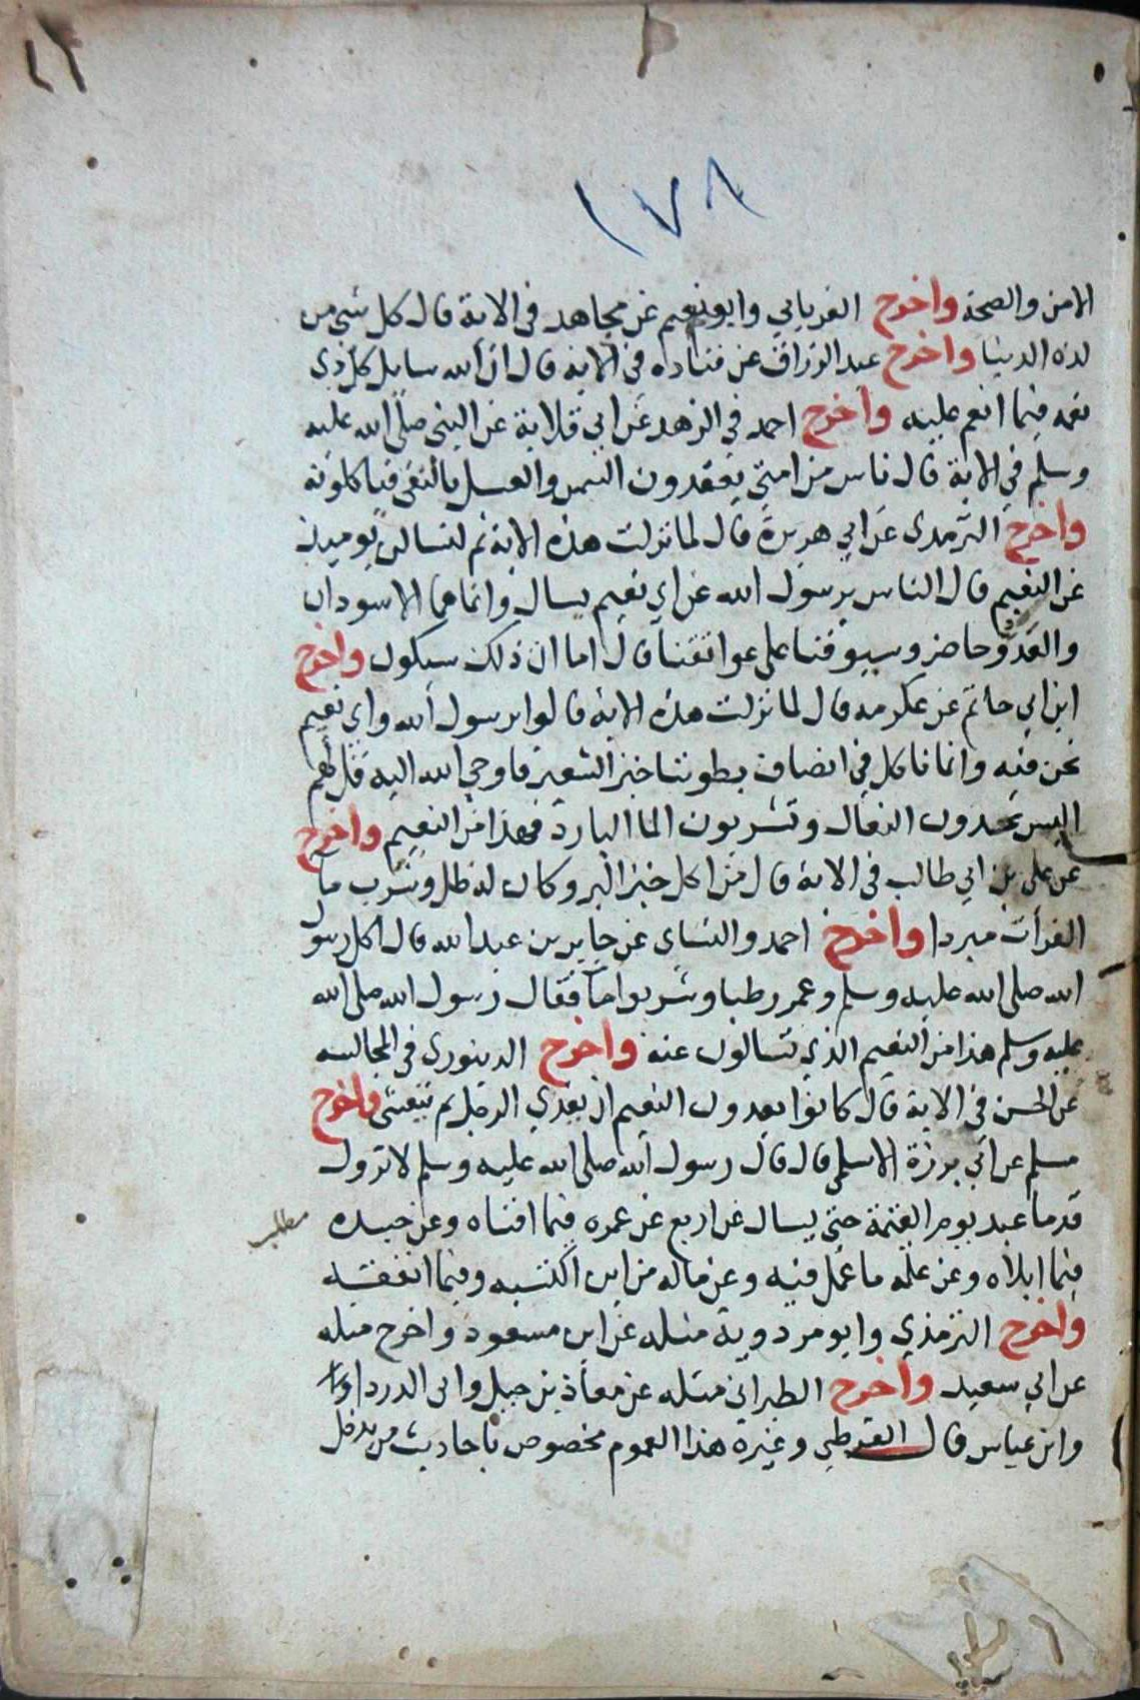 ١٧٨
الامن والصحة واخرج الفريابي وابو نعيم عن مجاهد في الاية قال كل شي من
لذة الدنيا واخرج عبد الرزاق عن قتادة في الاية قال ان الله سايل كل ذي
نعمة فيما انعم عليه واخرج احمد في الزهد عن ابي قلابة عن النبي صلى الله عليه
وسلم في الاية قال ناس من امتي يعقدون السمن والعسل بالنقي فياكلونه
واخرج الترمذي عن ابي هريرة قال لما نزلت هذه الاية ثم لتسالن يوميذ
عن النعيم قال الناس يرسول الله عن اي نعيم يسال وانما هما الاسودان
والعدو حاضر وسيوفنا على عواتقنا قال اما ان ذلك سيكون واخرج
ابن ابي حاتم عن عكرمه قال لما نزلت هذه الاية قالوا يرسول الله واي نعيم
نحن فيه وانما ناكل في انصاف بطوننا خبز الشعير فاوحي الله اليه قل لهم
اليس تحدون النعال وتشربون الما البارد فهذا من النعيم واخرج
عن علي بن ابي طالب في الاية قال من اكل خبز البر وكان له ظل وشرب ما
الفرات مبردا واخرج احمد والنساي عن جابر بن عبد الله قال اكل رسول
الله صلى الله عليه وسلم وعمر رطبا وشربوا ما فقال رسول الله صلى الله
عليه وسلم هذا من النعيم الذي تسالون عنه واخرج الدينوري في المجالسه
عن الحسن في الاية قال كانوا يعدون النعيم ان يغدي الرجل ثم يتعشى واخرج
مسلم عن ابي برزة الاسلمي قال قال رسول الله صلى الله عليه وسلم لا تزول
قدما عبد يوم القيمة حتى يسال عن اربع عن عمره فيما افناه وعن جسده
مطلب
فيما ابلاه وعن علمه ما عمل فيه وعن ماله من اين اكتسبه وفيما انفقه
واخرج الترمذي وابو مردوية مثله عن ابن مسعود واخرج مثله
عن ابي سعيد واخرج الطبراني مثله عن معاذ بن جبل وابي الدرداء
وابن عباس قال القرطبي وغيره هذا العموم مخصوص باحاديث من يدخل